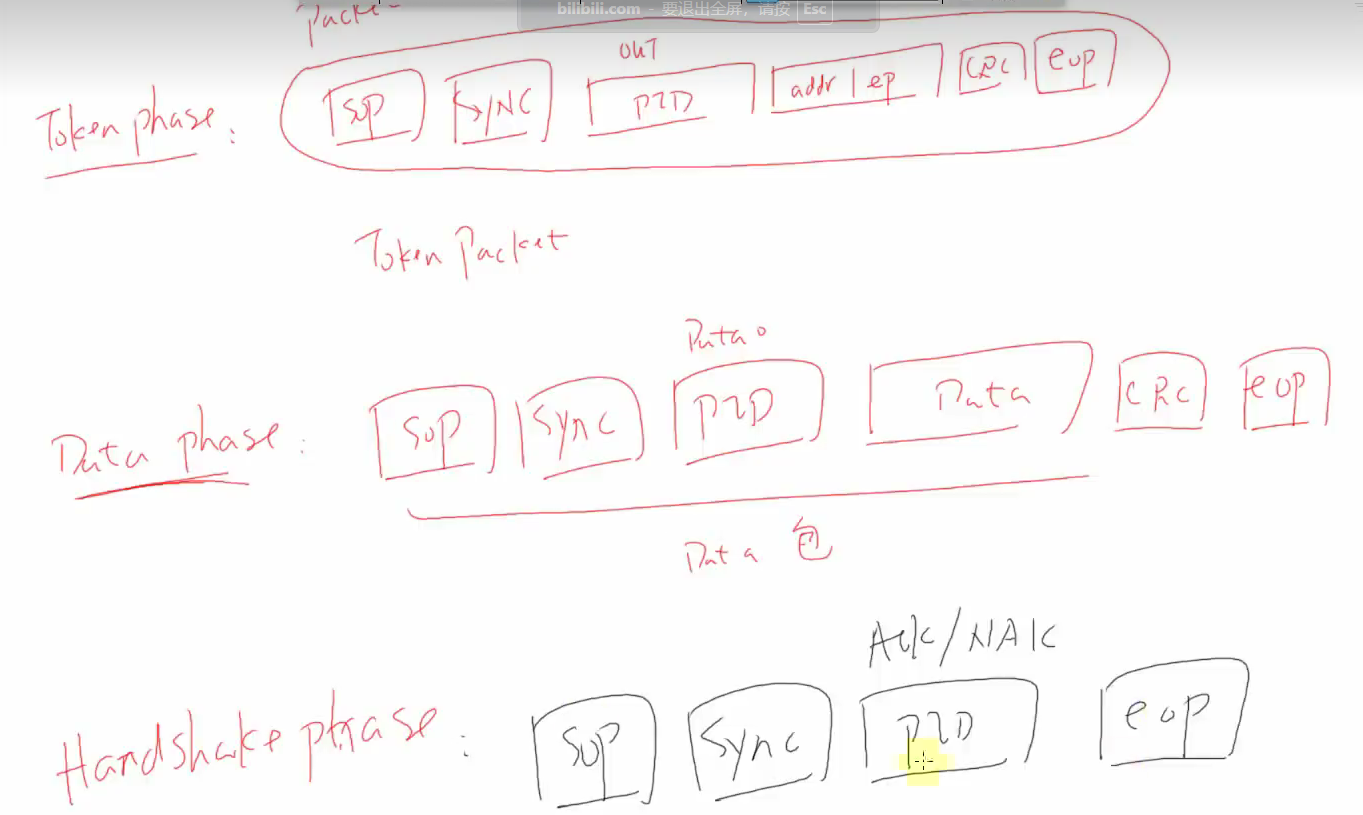 bilibili.com - 要退出全屏，请按 Esc
Packet
OUT
Token phase: SOP SYNC PID addr | ep CRC eop
Token Packet
Data0
Data phase: SOP Sync PID Data CRC eop
Data 包
Ack/NAK
Handshake phrase: SOP Sync PID eop